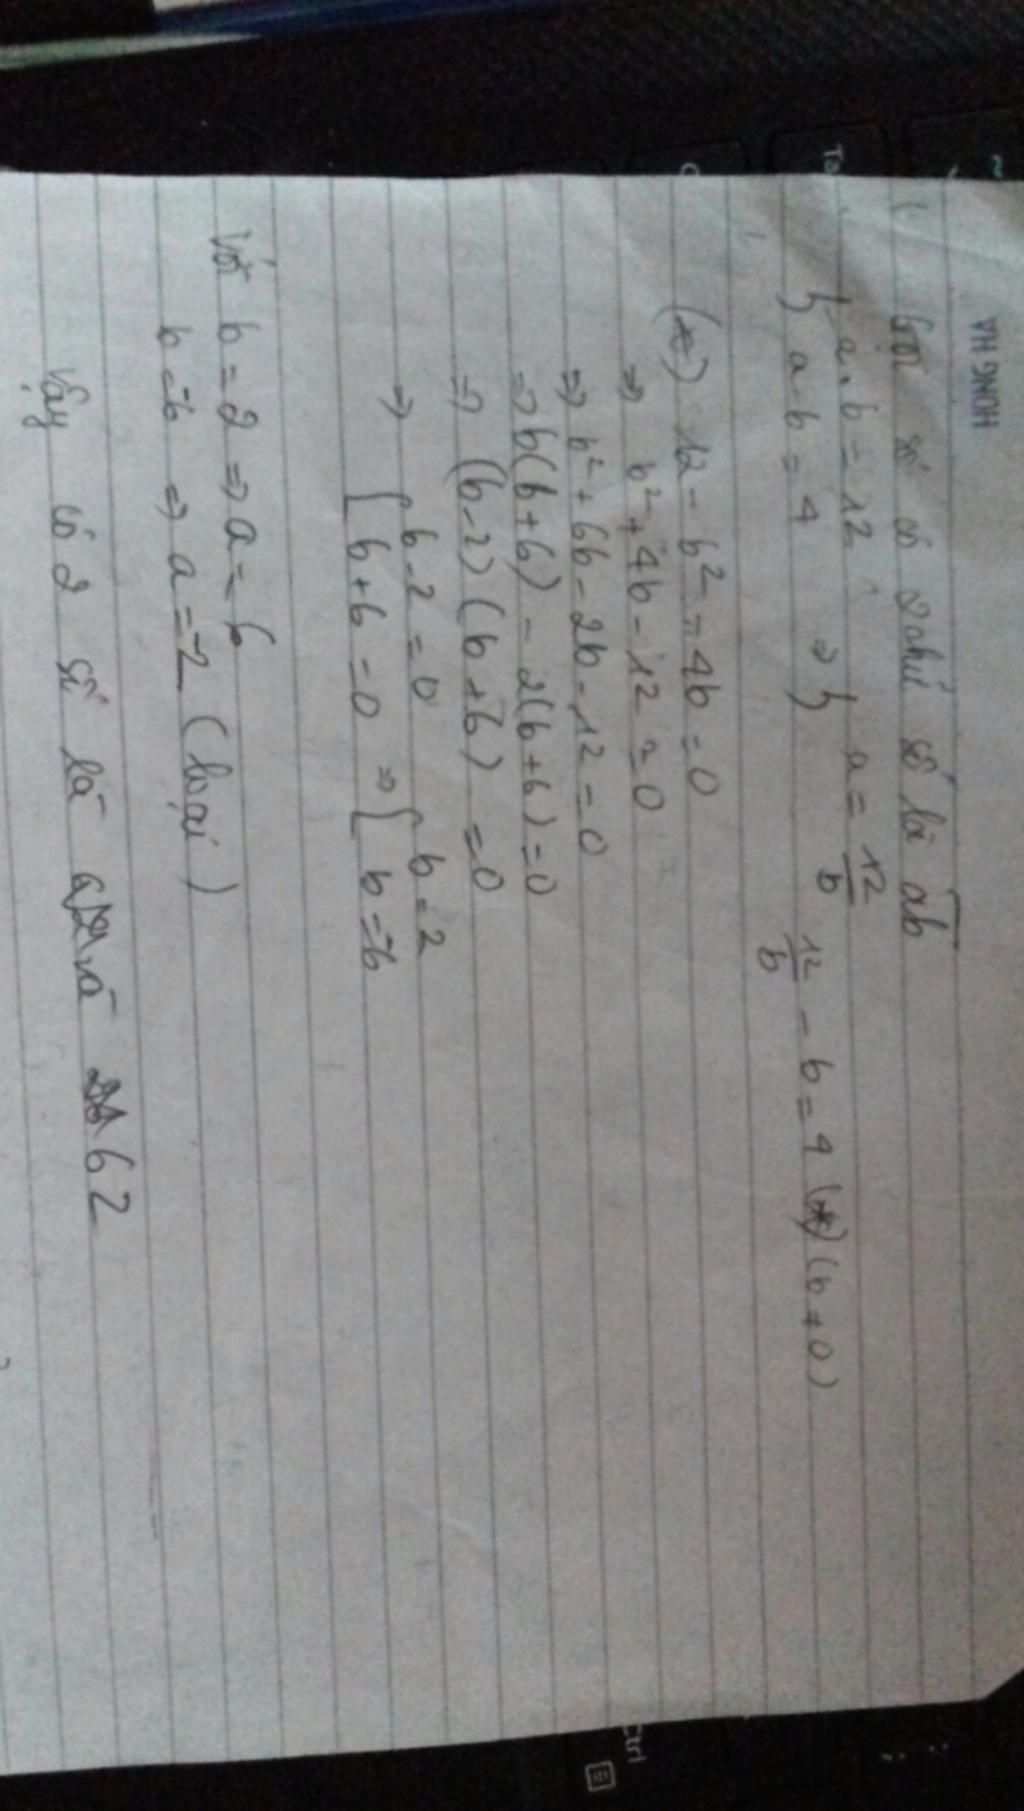 HƯNG HA
Gọi số có 2 chữ số là ab
{ a.b = 12
{ a-b = 4 => { a = 12/b
12/b - b = 4 (*) (b ≠ 0)
(*) 12 - b² - 4b = 0
=> b² + 4b - 12 = 0
=> b² + 6b - 2b - 12 = 0
=> b(b+6) - 2(b+6) = 0
=> (b-2)(b+6) = 0
=> [ b-2 = 0
[ b+6 = 0 => [ b = 2
[ b = -6
Với b = 2 => a = 6
b = -6 => a = -2 (loại)
Vậy có 2 số là và 62
Ctrl